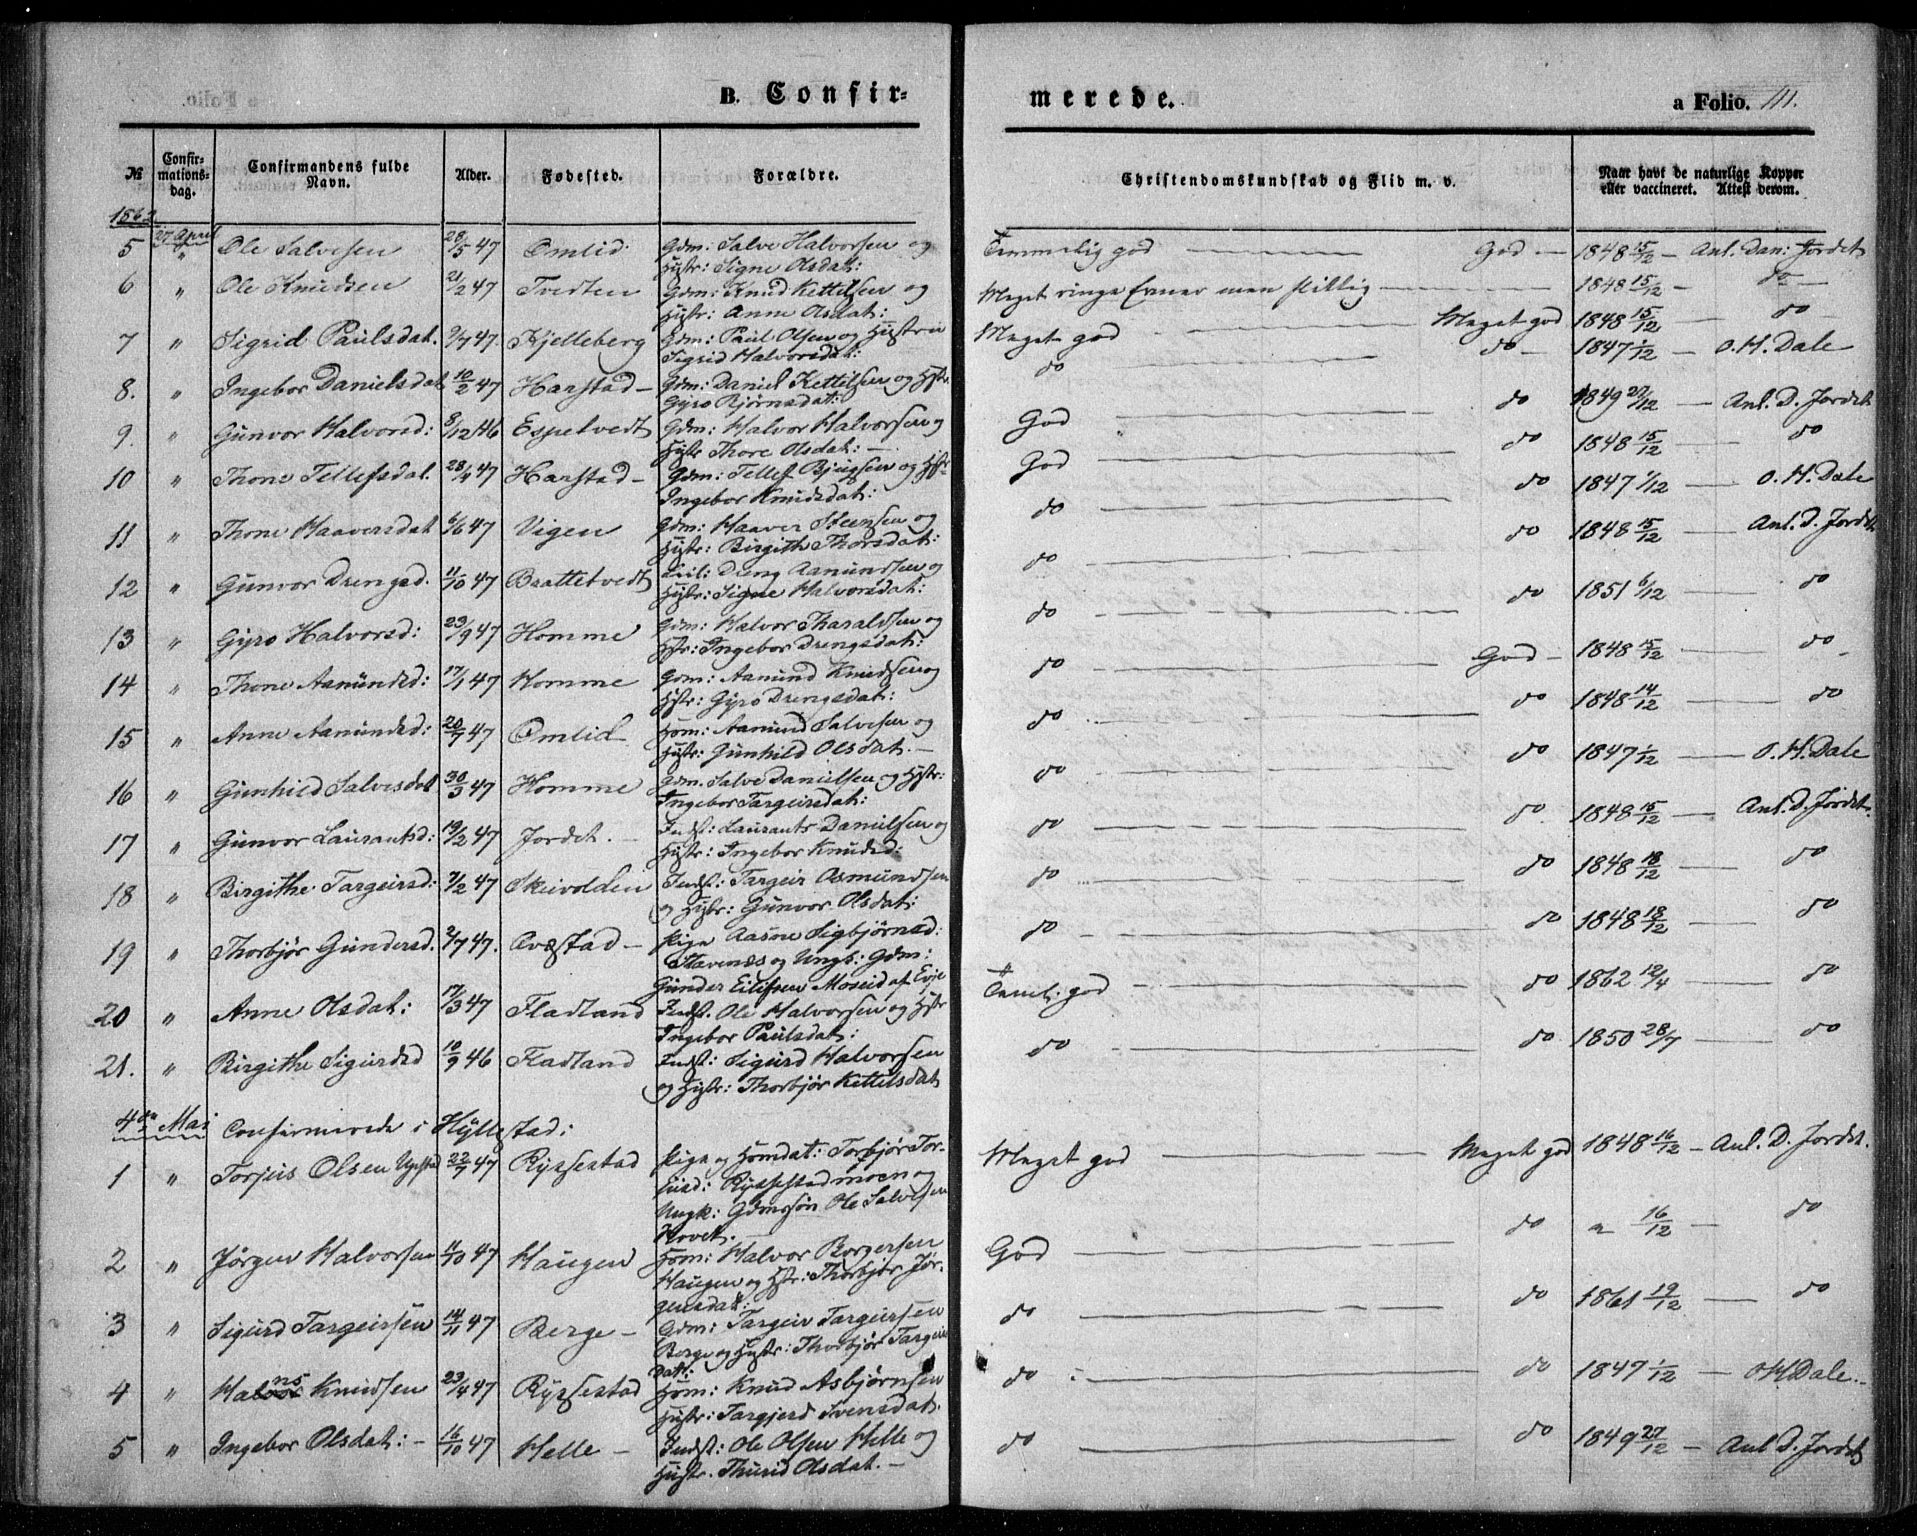 B. Confir-
merede.
a Folio. 111.
№ Confir-mations-dag. Confirmandens fulde Navn. Alder. Fødested. Forældre. Christendomskundskab og Flid m. v. Naar havt de naturlige Kopper eller vaccineret. Attest derom.
1862
27 April
5 " Ole Salvesen 28/5 47 Omlid Gdm: Salve Halvorsen og Temmelig god God 1848 15/12 Anl. Dan: Jordet
Hustr: Signe Olsdat:
6 " Ole Knudsen 21/2 47 Tvedten Gdm: Knud Kettelsen og Meget ringe Evner men flittig 1848 15/12 do
Hustr: Anne Olsdat:
7 " Sigrid Paulsdat. 9/7 47. Kjelleberg Gdm: Paul Olsen og Hustru Meget god Meget god 1848 15/12 do
Sigrid Halvorsdat:
8. " Ingebor Danielsdat 10/2 47 Harstad Gdm: Daniel Kettelsen og Hstr: do do 1847 1/12 O. H. Dale
Gyro Bjørnsdat:
9. " Gunvor Halvorsd: 8/12 46 Espetvedt Gdm: Halvor Halvorsen og God do 1849 27/12 Anl. D. Jordet
Hustr Thore Olsdat:
10 " Thone Tellefsdat. 28/4 47 Harstad Gdm: Tellef Bjugsen og Hstr God do 1848 15/12 do
Ingebor Knudsdat:
11 " Thone Haaversdat 6/6 47 Vigen Gdm: Haaver Steensen og do do 1847 1/12 O. H. Dale
Hustr: Birgithe Thorsdat:
12 " Gunvor Drengsd. 11/10 47 Brattetvedt Leil: Dreng Aamundsen og do do 1848 15/12 Anl. D. Jordet
Hustr: Signe Halvorsdat:
13 " Gyro Halvorsd: 23/9 47 Homme Gdm: Halvor Tharaldsen og do do 1851 6/12 do
Hstr: Ingebor Drengsdat:
14 " Thone Aamundsd: 17/1 47 Homme Gdm: Aamund Knudsen og do God 1848 15/12 do
Hstr: Gyro Drengsdat:
15 " Anne Aamundsd: 20/7 47 Omlid Hom: Aamund Salvesen og do do 1848 14/12 do
Hustr: Gunhild Olsdat.
16 " Gunhild Salvesdat 30/3 47 Homme Gdm. Salve Danielsen og Hstr: do do 1847 1/12 O. H. Dale
Ingebor Targeirsdat:
17 " Gunvor Laurantsd: 19/2 47 Jordet. Indst: Laurants Danielsen og do do 1848 15/12 Anl. D. Jordet.
Hustr: Ingebor Knudsd:
18 " Birgithe Targeirsd: 7/2 47 Skeivolden Indst: Targeir Osmundsen do do 1848 18/12 do
og Hustr: Gunvor Olsdat:
19 " Thorbjør Gundersd. 2/7 47. Qvæstad Pige Aasne Sigbjørnsd: do do 1848 18/12 do
Stavenæs og Ungk: Gdm:
Gunder Eilifsen Moseid af Evje
20 " Anne Olsdat: 17/3 47 Fladland Indst. Ole Halvorsen og Hstr Temli: god do 1862 12/4 do
Ingebor Paulsdat:
21. " Birgithe Sigurdsd 10/9 46 Fladland Indst: Sigurd Halvorsen do do 1850 28/7 do
og Hustr: Thorbjør Kettelsdat
4de Mai Confirmerede i Hyllestad:
1 " Torjus Olsen 22/7 47 Ryssestad Pige og Homdat: Torbjør Tor- Meget god Meget god 1848 16/12 Anl. D. Jordet.
jusd: Ryssestadmoen og
Ungk: Gdmssøn Ole Salvesen
Hovet.
2 " Jørgen Halvorsen 11/10 47 Haugen Hom: Halvor Borgersen God do " 16/12 do
Haugen og Hstr: Thorbjør Jør-
gensdat:
3 " Sigurd Targeirsen 14/11 47 Berge Gdm: Targeir Targeirsen do do 1861 19/12 do
Berge og Hustr: Thorbjør Targeirs
Datt:
4 " Hans Knudsen 23/4 47 Ryssestad Hom: Knud Asbjørnsen do do 1847 1/12 O H Dale
Hustr: Targjerd Svensdat.
5 " Ingebor Olsdat: 16/10 47 Helle Indst: Ole Olsen Helle og do do 1849 27/12 Anl D. Jordet
Hustr. Thurid Olsdat.